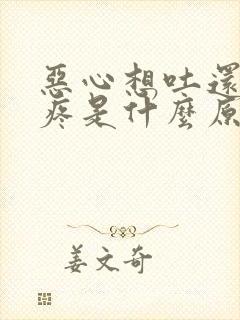 惡心想吐還
疼是什麼原
姜文奇